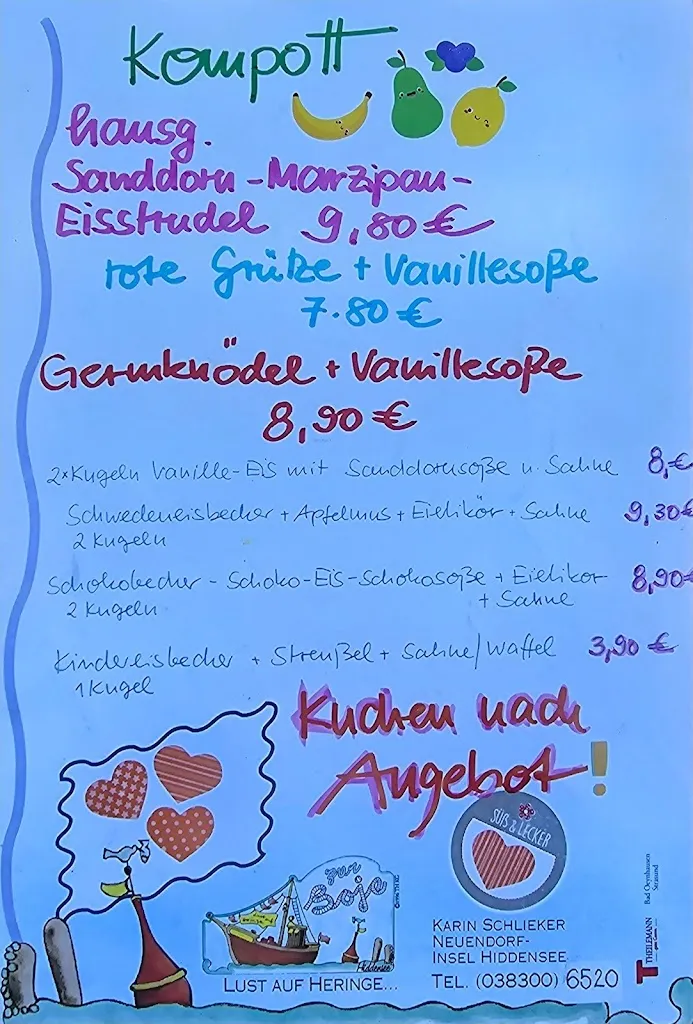 Kompott
hausg.
Sanddorn-Marzipan-
Eisstrudel 9,80 €
rote Grütze + Vanillesoße
7.80 €
Germknödel + Vanillesoße
8,90 €
2x Kugeln Vanille-Eis mit Sanddornsoße u. Sahne 8,-€
Schwedeneisbecher + Apfelmus + Eielikör + Sahne 9,30€
2 Kugeln
Schokobecher - Schoko-Eis-Schokosoße + Eielikör 8,90€
2 Kugeln + Sahne
Kindereisbecher + Streußel + Sahne/Waffel 3,90 €
1 Kugel
Kuchen nach
Angebot!
SÜß & LECKER
zur
Boje
Hiddensee
LUST AUF HERINGE...
KARIN SCHLIEKER
NEUENDORF-
INSEL HIDDENSEE
TEL. (038300) 6520
THEILEMANN
Bad Oeynhausen
Stralsund